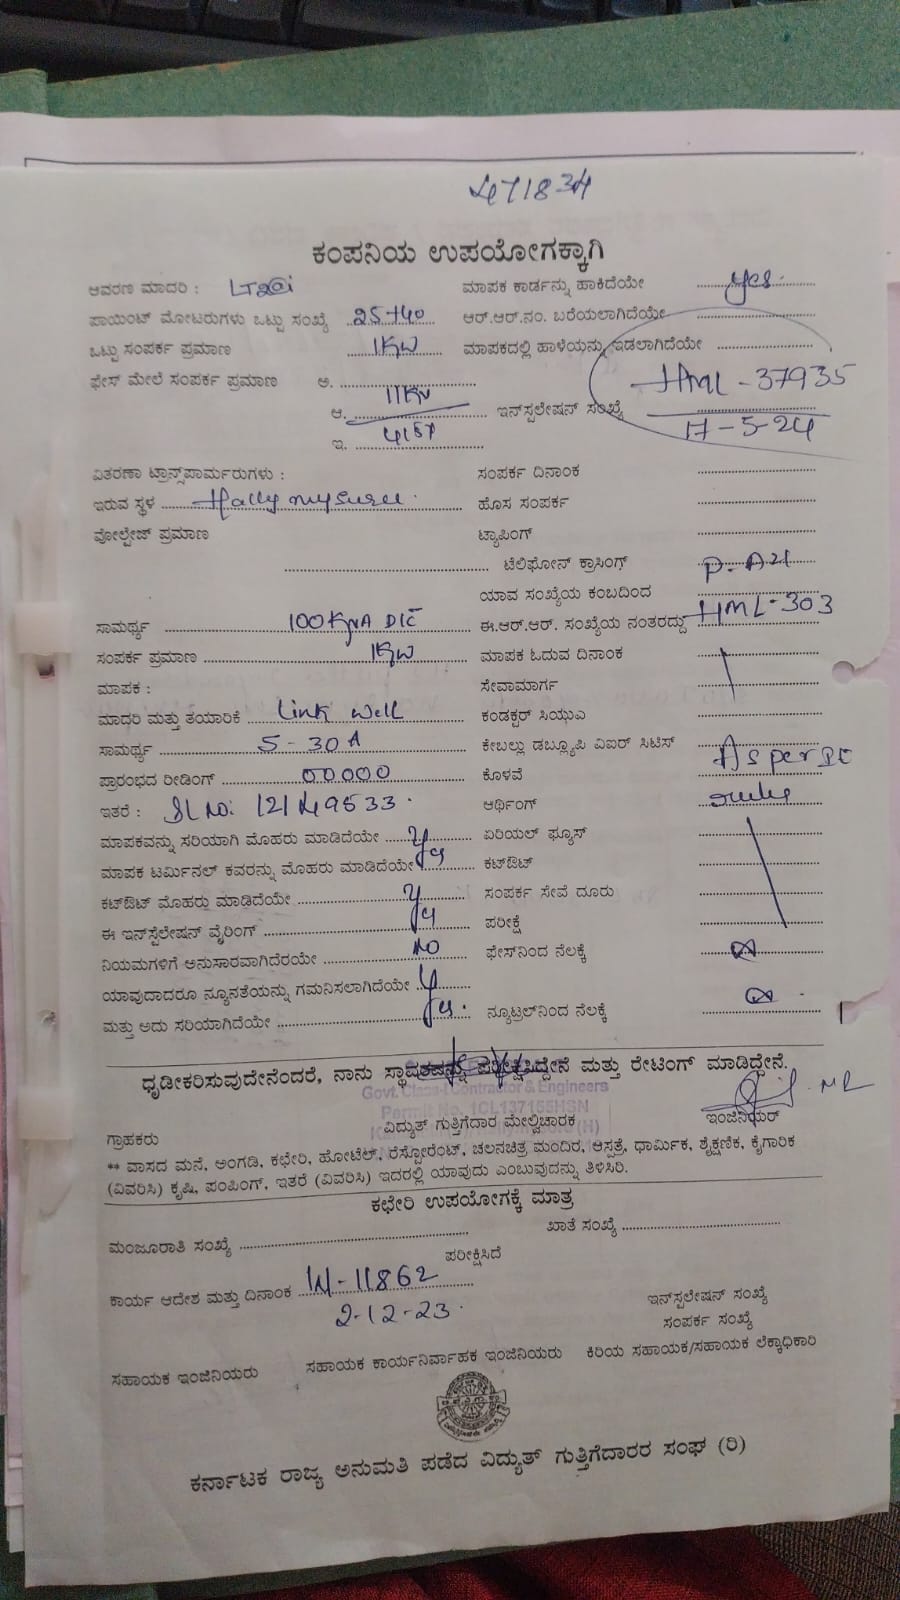 471834
ಕಂಪನಿಯ ಉಪಯೋಗಕ್ಕಾಗಿ
ಆವರಣ ಮಾದರಿ : LT2ai ಮಾಪಕ ಕಾರ್ಡನ್ನು ಹಾಕಿದೆಯೇ yes
ಪಾಯಿಂಟ್ ಮೋಟರುಗಳು ಒಟ್ಟು ಸಂಖ್ಯೆ 25+40 ಆರ್.ಆರ್.ನಂ. ಬರೆಯಲಾಗಿದೆಯೇ
ಒಟ್ಟು ಸಂಪರ್ಕ ಪ್ರಮಾಣ 1KW ಮಾಪಕದಲ್ಲಿ ಹಾಳೆಯನ್ನು ಇಡಲಾಗಿದೆಯೇ
ಫೇಸ್ ಮೇಲೆ ಸಂಪರ್ಕ ಪ್ರಮಾಣ ಅ. HML-37935
ಆ. 11KV ಇನ್‌ಸ್ಪಲೇಷನ್ ಸಂಖ್ಯೆ 17-5-24
ಇ.
ವಿತರಣಾ ಟ್ರಾನ್ಸ್‌ಪಾರ್ಮರುಗಳು : ಸಂಪರ್ಕ ದಿನಾಂಕ
ಇರುವ ಸ್ಥಳ Hally mysuru ಹೊಸ ಸಂಪರ್ಕ
ವೋಲ್ಟೇಜ್ ಪ್ರಮಾಣ ಟ್ಯಾಪಿಂಗ್
ಟೆಲಿಫೋನ್ ಕ್ರಾಸಿಂಗ್
ಯಾವ ಸಂಖ್ಯೆಯ ಕಂಬದಿಂದ
ಸಾಮರ್ಥ್ಯ 100KVA DTC ಈ.ಆರ್.ಆರ್. ಸಂಖ್ಯೆಯ ನಂತರದ್ದು HML-303
ಸಂಪರ್ಕ ಪ್ರಮಾಣ 1KW ಮಾಪಕ ಓದುವ ದಿನಾಂಕ
ಮಾಪಕ : ಸೇವಾಮಾರ್ಗ
ಮಾದರಿ ಮತ್ತು ತಯಾರಿಕೆ Link Well ಕಂಡಕ್ಟರ್ ಸಿಯುಎ
ಸಾಮರ್ಥ್ಯ 5-30A ಕೇಬಲ್ಲು ಡಬ್ಲ್ಯೂಪಿ ವಿಐಆರ್ ಸಿಟಿಸ್
ಪ್ರಾರಂಭದ ರೀಡಿಂಗ್ 00000 ಕೊಳವೆ As per IE
ಇತರೆ : Sl No: 12149533 ಆರ್ಥಿಂಗ್ rules
ಮಾಪಕವನ್ನು ಸರಿಯಾಗಿ ಮೊಹರು ಮಾಡಿದೆಯೇ ಏರಿಯಲ್ ಫ್ಯೂಸ್
ಮಾಪಕ ಟರ್ಮಿನಲ್ ಕವರನ್ನು ಮೊಹರು ಮಾಡಿದೆಯೇ yes ಕಟ್‌ಔಟ್
ಕಟ್‌ಔಟ್ ಮೊಹರು ಮಾಡಿದೆಯೇ ಸಂಪರ್ಕ ಸೇವೆ ದೂರು
ಈ ಇನ್‌ಸ್ಪೆಲೇಷನ್ ವೈರಿಂಗ್ yes ಪರೀಕ್ಷೆ
ನಿಯಮಗಳಿಗೆ ಅನುಸಾರವಾಗಿದೆರಯೇ NO ಫೇಸ್‌ನಿಂದ ನೆಲಕ್ಕೆ
ಯಾವುದಾದರೂ ನ್ಯೂನತೆಯನ್ನು ಗಮನಿಸಲಾಗಿದೆಯೇ
ಮತ್ತು ಅದು ಸರಿಯಾಗಿದೆಯೇ yes ನ್ಯೂಟ್ರಲ್‌ನಿಂದ ನೆಲಕ್ಕೆ
ಧೃಡೀಕರಿಸುವುದೇನೆಂದರೆ, ನಾನು ಸ್ಥಾವರವನ್ನು ಪರೀಕ್ಷಿಸಿದ್ದೇನೆ ಮತ್ತು ರೇಟಿಂಗ್ ಮಾಡಿದ್ದೇನೆ.
Govt. Class-I Contractor & Engineers
Permit No. 1CL137155HSN
ಗ್ರಾಹಕರು ವಿದ್ಯುತ್ ಗುತ್ತಿಗೆದಾರ ಮೇಲ್ವಿಚಾರಕ ಇಂಜಿನಿಯರ್
** ವಾಸದ ಮನೆ, ಅಂಗಡಿ, ಕಛೇರಿ, ಹೋಟೆಲ್, ರೆಸ್ಟೋರೆಂಟ್, ಚಲನಚಿತ್ರ ಮಂದಿರ, ಆಸ್ಪತ್ರೆ, ಧಾರ್ಮಿಕ, ಶೈಕ್ಷಣಿಕ, ಕೈಗಾರಿಕ
(ವಿವರಿಸಿ) ಕೃಷಿ, ಪಂಪಿಂಗ್, ಇತರೆ (ವಿವರಿಸಿ) ಇದರಲ್ಲಿ ಯಾವುದು ಎಂಬುವುದನ್ನು ತಿಳಿಸಿರಿ.
ಕಛೇರಿ ಉಪಯೋಗಕ್ಕೆ ಮಾತ್ರ
ಮಂಜೂರಾತಿ ಸಂಖ್ಯೆ ಖಾತೆ ಸಂಖ್ಯೆ
ಪರೀಕ್ಷಿಸಿದೆ
ಕಾರ್ಯ ಆದೇಶ ಮತ್ತು ದಿನಾಂಕ W-11862
2-12-23
ಇನ್‌ಸ್ಪಲೇಷನ್ ಸಂಖ್ಯೆ
ಸಂಪರ್ಕ ಸಂಖ್ಯೆ
ಸಹಾಯಕ ಇಂಜಿನಿಯರು ಸಹಾಯಕ ಕಾರ್ಯನಿರ್ವಾಹಕ ಇಂಜಿನಿಯರು ಕಿರಿಯ ಸಹಾಯಕ/ಸಹಾಯಕ ಲೆಕ್ಕಾಧಿಕಾರಿ
ಕರ್ನಾಟಕ ರಾಜ್ಯ ಅನುಮತಿ ಪಡೆದ ವಿದ್ಯುತ್ ಗುತ್ತಿಗೆದಾರರ ಸಂಘ (ರಿ)